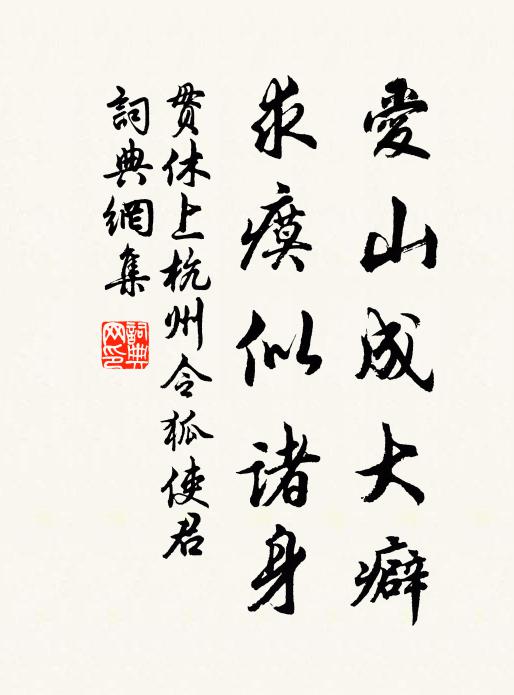 愛山成大癖
求瘼似諸身
貫休上杭州令狐使君
詞典網集
詞典网印